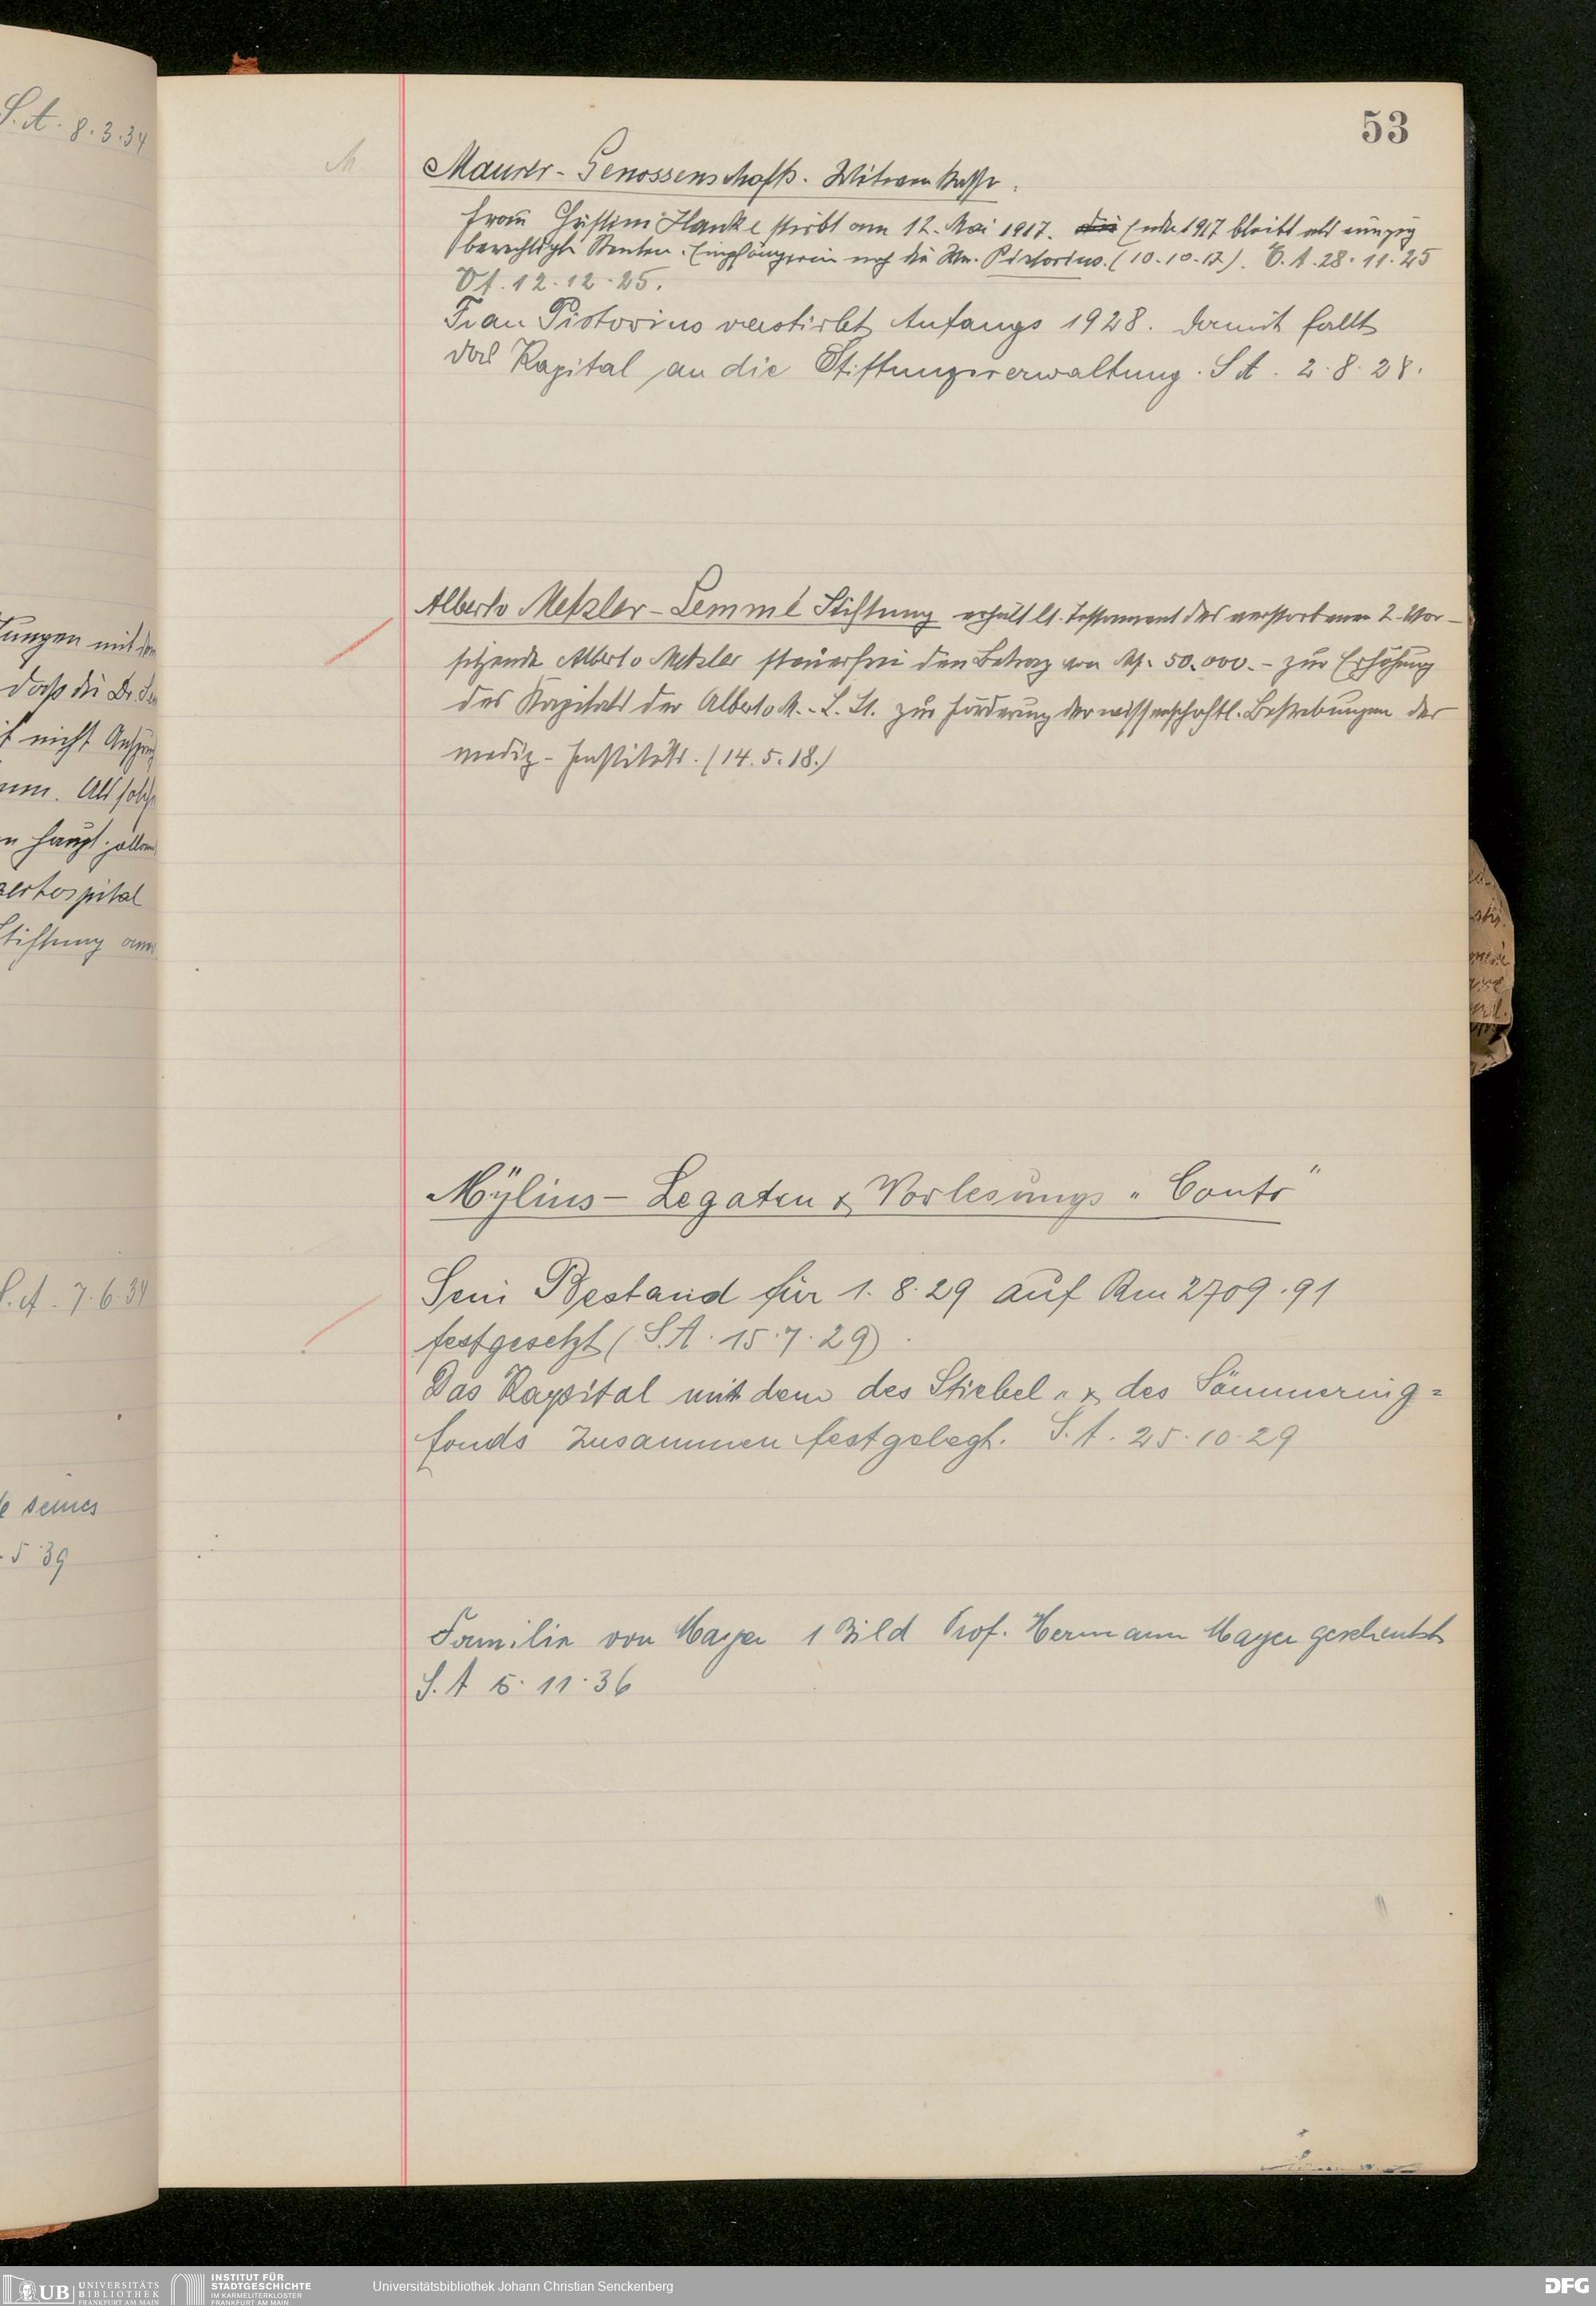 S.A. 8.3.34
tungen mit
dass die Dr.
nicht
um. Als
haupt
hospital
Stiftung
S.A. 7.6.34
seines
5 39
53
M
Maurer-Genossenschafts. Witwenkasse.
Frau Hanke stirbt am 12. Mai 1917. die Ende 1917 bleibt als einzig
berechtigte Renten-Empfängerin noch die Wwe. Pistorius. (10.10.17). V.A. 28.11.25
VA. 12.12.25.
Frau Pistorius verstirbt Anfangs 1928. Damit fällt
das Kapital an die Stiftungsverwaltung. SA. 2.8.28.
Alberto Metzler-Lemmé Stiftung erhält lt. Testament des verstorbenen 2. Vor-
sitzende Alberto Metzler steuerfrei den Betrag von M. 50.000.- zur Erhöhung
des Kapitals der Alberto M.-L. St. zur Förderung der wissenschaftl. Bestrebungen der
mediz-Institute. (14.5.18.)
Mÿlius- Legaten & Vorlesungs "Conto"
Sein Bestand für 1.8.29 auf Rm 2709.91
festgesetzt (S.A. 15.7.29).
Das Kapital mit dem des Stiebel- & des Sömmering=
fonds zusammen festgelegt. S.A. 25.10.29
Familie von Mayer 1 Bild Prof. Hermann Mayer geschenkt
S.A 5.11.36
UB UNIVERSITÄTS
BIBLIOTHEK
FRANKFURT AM MAIN
INSTITUT FÜR
STADTGESCHICHTE
IM KARMELITERKLOSTER
FRANKFURT AM MAIN
Universitätsbibliothek Johann Christian Senckenberg
DFG